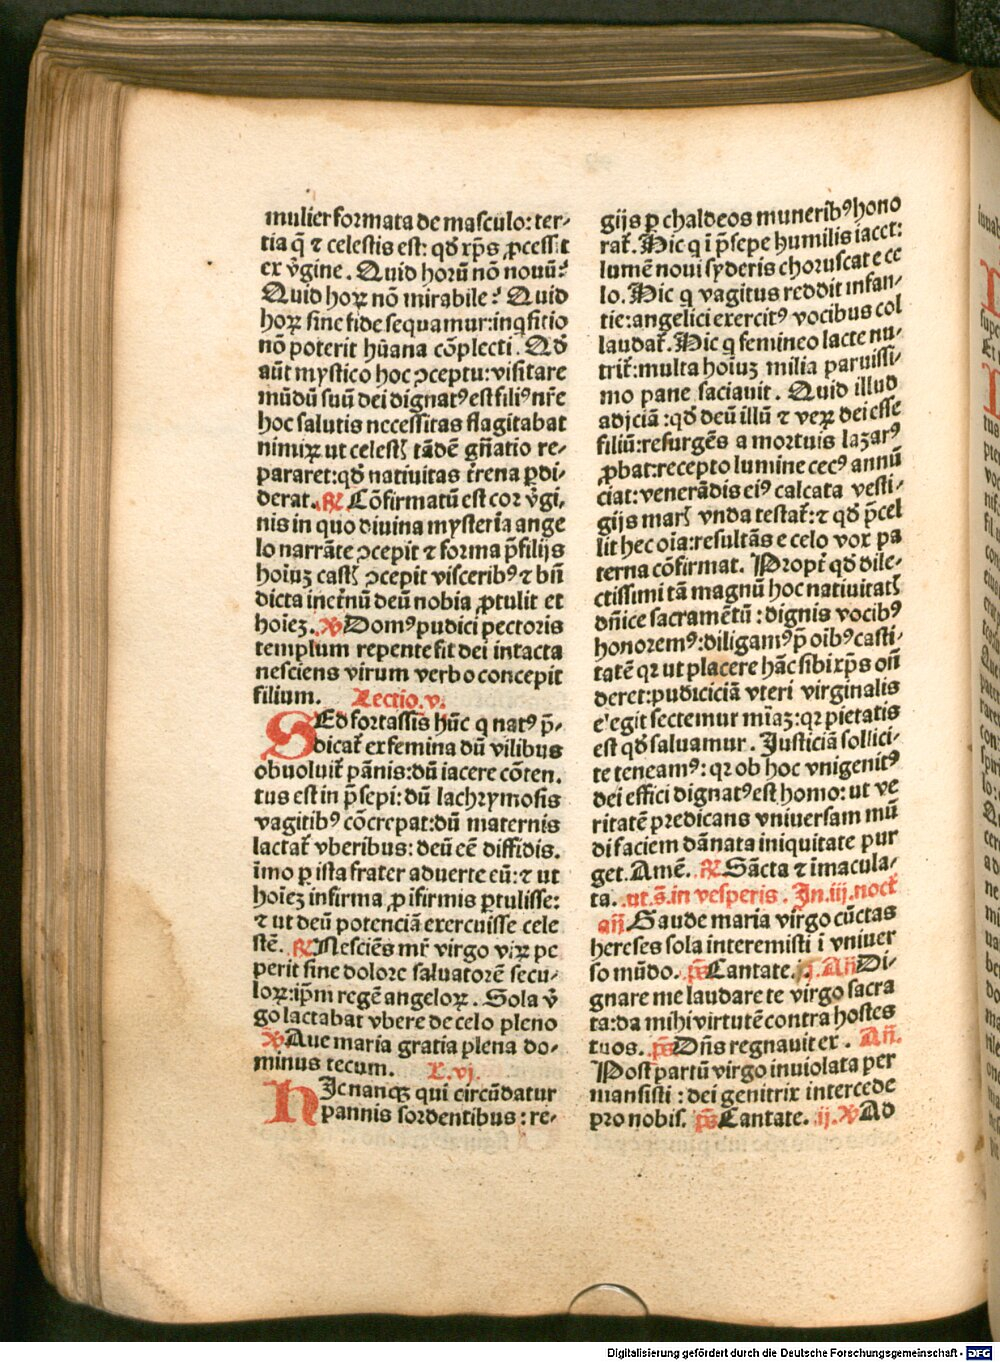 mulier formata de masculo: ter-
tia q̄ ⁊ celestis est: qđ xp̄s ꝓcessit
ex v̄gine. Quid horū nō nouū?
Quid hoꝝ nō mirabile? Quid
hoꝝ sine fide sequamur: inq̇sitio
nō poterit hūana cōplecti. Qđ
aūt mystico hoc ↄceptu: visitare
mūdū suū dei dignatꝰ est filiꝰ nr̄e
hoc salutis necessitas flagitabat
nimiꝝ ut celestꝭ tādē gn̄atio re-
pararet: qđ natiuitas t̄rena ꝑdi-
derat. ℟ Cōfirmatū est cor v̄gi-
nis in quo diuina mysteria ange
lo narrāte ↄcepit ⁊ forma p̄ filijs
hoīuꝫ castꝭ ↄcepit visceribꝰ ⁊ bn̄
dicta inet̄nū deū nobia ꝓtulit et
hoīeꝫ. ℣ Domꝰ pudici pectoris
templum repente fit dei intacta
nesciens virum verbo concepit
filium. Lectio. v.
SEd fortassis hūc q natꝰ p̄-
dicat̄ ex femina dū vilibus
obuoluit̄ pānis: dū iacere cōten.
tus est in p̄sepi: dū lachrymosis
vagitibꝰ cōcrepat: dū maternis
lactat̄ vberibus: deū eē diffidis.
īmo ꝑ ista frater aduerte eū: ⁊ ut
hoīeꝫ infirma ꝓ ifirmis ꝑtulisse:
⁊ ut deū potenciā exercuisse cele
stē. ℟ Nesciēs mr̄ virgo viꝝ pe
perit sine dolore saluatorē secu-
loꝝ: ip̄m regē angeloꝝ. Sola v̄
go lactabat vbere de celo pleno
℣ Aue maria gratia plena do-
minus tecum. L. vj.
HJc nanqꝫ qui circūdatur
pannis sordentibus: re-
gijs ꝑ chaldeos muneribꝰ hono
rat̄. Hic q ī p̄sepe humilis iacet:
lumē noui syderis choruscat e ce
lo. Hic q vagitus reddit infan-
tie: angelici exercitꝰ vocibus col
laudat̄. Hic q femineo lacte nu-
trit̄: multa hoīuꝫ milia paruissi-
mo pane saciauit. Quid illud
adjciā: qđ deū illū ⁊ veꝝ dei esse
filiū: resurgēs a mortuis lazarꝰ
ꝓbat: recepto lumine cecꝰ annū
ciat: venerādis eiꝰ calcata vesti-
gijs marꝭ vnda testat̄: ⁊ qđ p̄cel
lit hec oīa: resultās e celo vox pa
terna cōfirmat. Propt̄ qđ dile-
ctissimi tā magnū hoc natiuitatꝭ
dn̄ice sacramētū: dignis vocibꝰ
honoremꝰ: diligamꝰ p̄ oībꝰ casti-
tatē qr ut placere hāc sibi xp̄s on̄
deret: pudiciciā vteri virginalis
elegit sectemur mīaꝫ: qr pietatis
est qđ saluamur. Justiciā sollici-
te teneamꝰ: qr ob hoc vnigenitꝰ
dei effici dignatꝰ est homo: ut ve
ritatē predicans vniuersam mū
di faciem dānata iniquitate pur
get. Amē. ℟ Sācta ⁊ īmacula-
ta. ut. s̄. in vesperis. In. iij. noct̄
an̄ Gaude maria virgo cūctas
hereses sola interemisti ī vniuer
so mūdo. ps̄ Cantate. j. An̄ Di-
gnare me laudare te virgo sacra
ta: da mihi virtutē contra hostes
tuos. ps̄ Dn̄s regnauit ex. An̄.
Post partū virgo inuiolata per
mansisti: dei genitrix intercede
pro nobis. ps̄ Cantate. ij. ℣ Ad
Digitalisierung gefördert durch die Deutsche Forschungsgemeinschaft - DFG